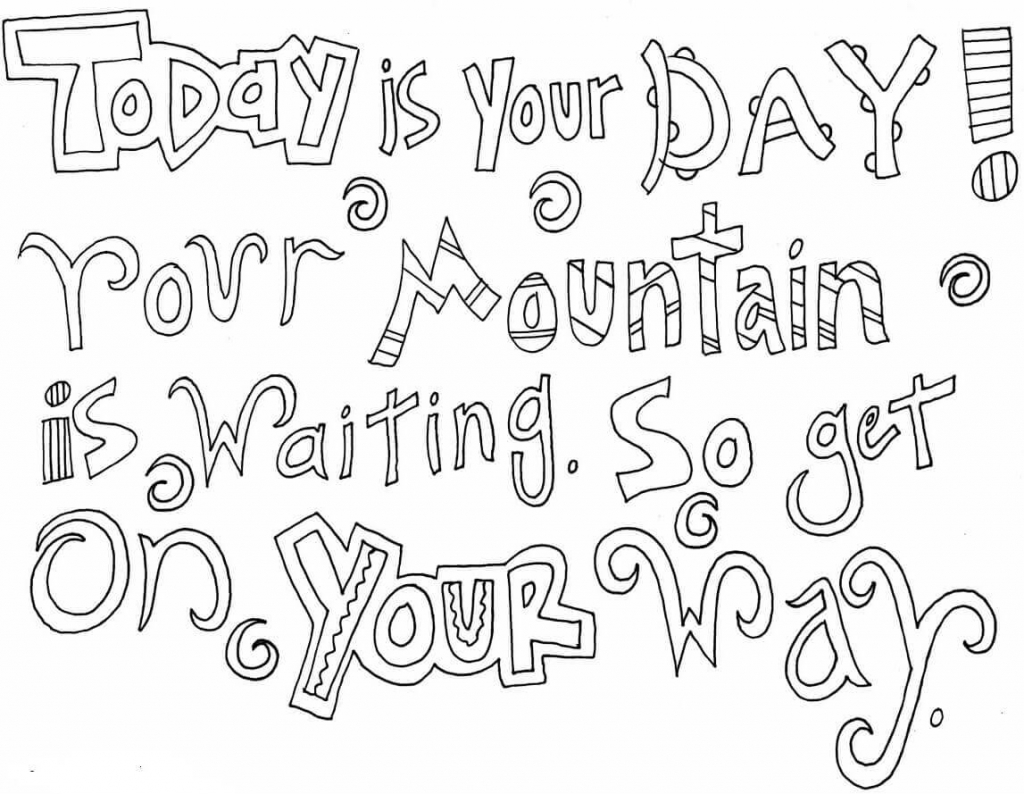 Today is Your DAY!
Your Mountain
is Waiting. So get
On YOUR Way.